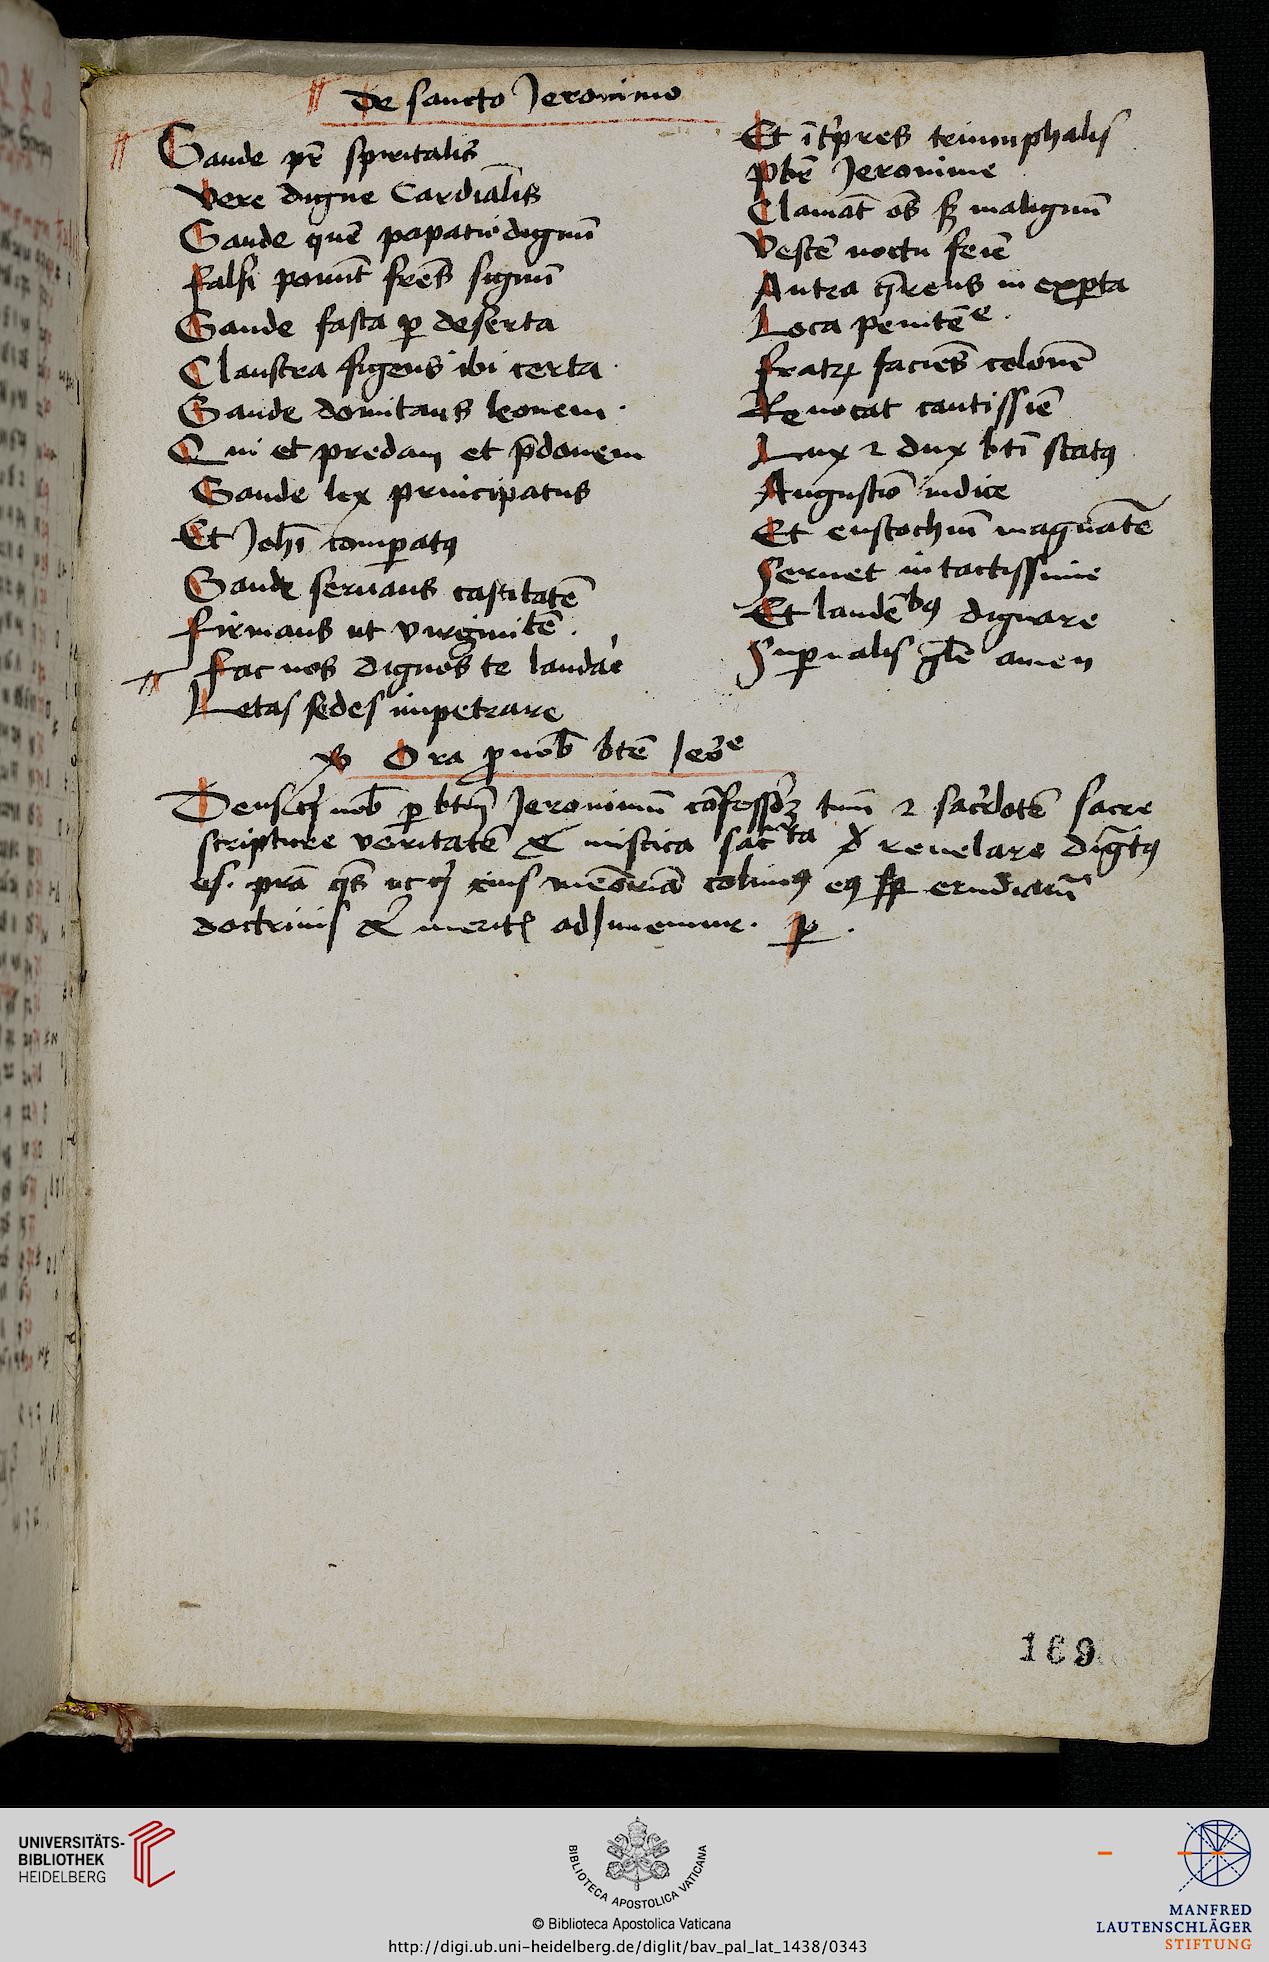 De sancto Jeronimo
Gaude pr̄ spiritalis
Vere digne Cardiālis
Gaude quē papatu dignū
Falsi ponūt frēs signū
Gaude fasta ꝑ deserta
Claustra figens ibi certa
Gaude domitans leonem
Qui et predam et p̄donem
Gaude lex principatus
Et Joh̄i comꝑatꝰ
Gaude seruans castitatē
Firmans ut virginitē
Fac nos dignos te laudar̄e
Letas sedes impetrare
Et īt̓pres triumphalis
pbr̄e Jeronime
Clamāt oēs ꝫ malignū
Vestē noctu feīe
Antra q̄rens in exꝑta
Loca penitēe
Fratꝝ facies colonē
Reuocat cautissīe
Lux ⁊ dux btī statꝰ
Augustīo iudice
Et eustochiū magnātē
Seruet intactissime
Et laudēbꝰ dignare
Suꝑnalis gl̄e amen
℣ Ora ꝓ nob̄ btē Jeōe
Deus q̄ nob̄ ꝑ btm̄ Jeronimū cōfessorꝫ tuū ⁊ sac̓dotē sacre
scripture veritatē & mistica sac̄ta reuelare dig̈tꝰ
es. p̄ra q̄s ut cꝰ eius memōriā colimꝰ eꝰ sꝑ erudiamur̄
doctrinis & meritꝭ adiuuemur. ꝑ.
169
UNIVERSITÄTS-
BIBLIOTHEK
HEIDELBERG
BIBLIOTECA APOSTOLICA VATICANA
© Biblioteca Apostolica Vaticana
http://digi.ub.uni-heidelberg.de/diglit/bav_pal_lat_1438/0343
MANFRED
LAUTENSCHLÄGER
STIFTUNG